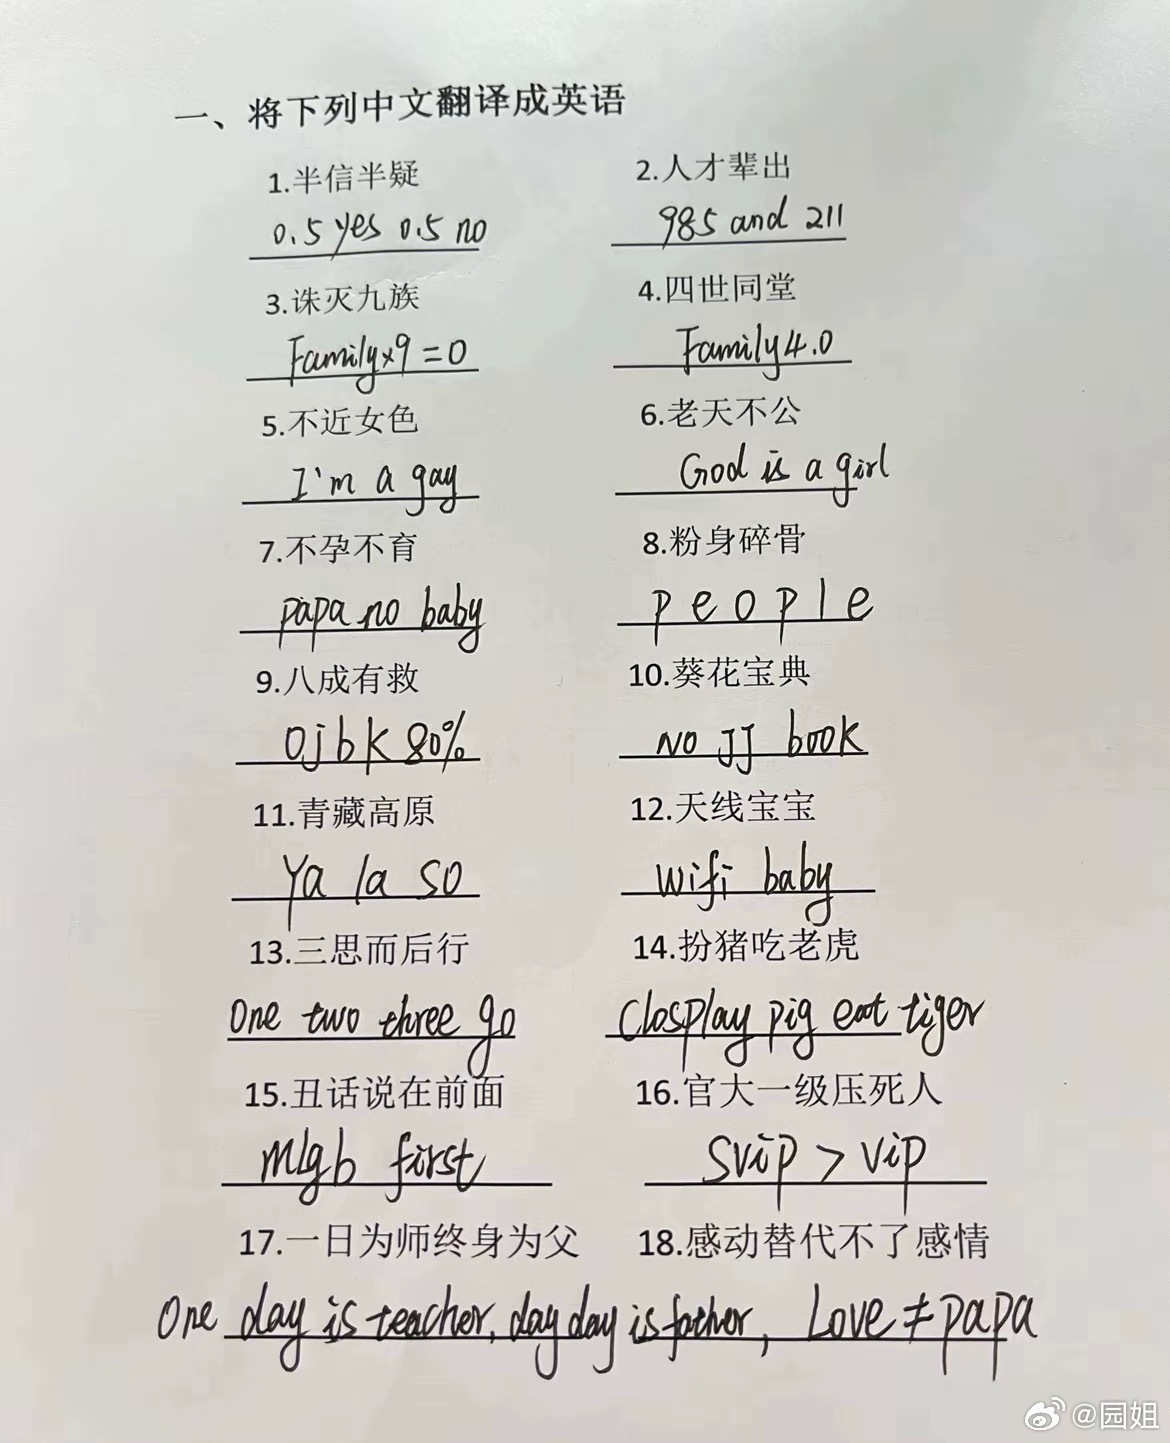 一、将下列中文翻译成英语
1.半信半疑 2.人才辈出
0.5 yes 0.5 no 985 and 211
3.诛灭九族 4.四世同堂
Family×9=0 Family4.0
5.不近女色 6.老天不公
I'm a gay God is a girl
7.不孕不育 8.粉身碎骨
papa no baby p e o p l e
9.八成有救 10.葵花宝典
Ojbk 80% NO JJ book
11.青藏高原 12.天线宝宝
Ya la so wifi baby
13.三思而后行 14.扮猪吃老虎
One two three go Closplay pig eat tiger
15.丑话说在前面 16.官大一级压死人
mlgb first Svip > vip
17.一日为师终身为父 18.感动替代不了感情
One day is teacher, day day is father, Love ≠ papa
@园姐